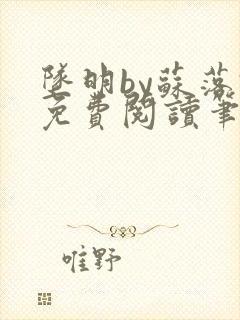 墜明by蘇落
免費閱讀筆
唯野